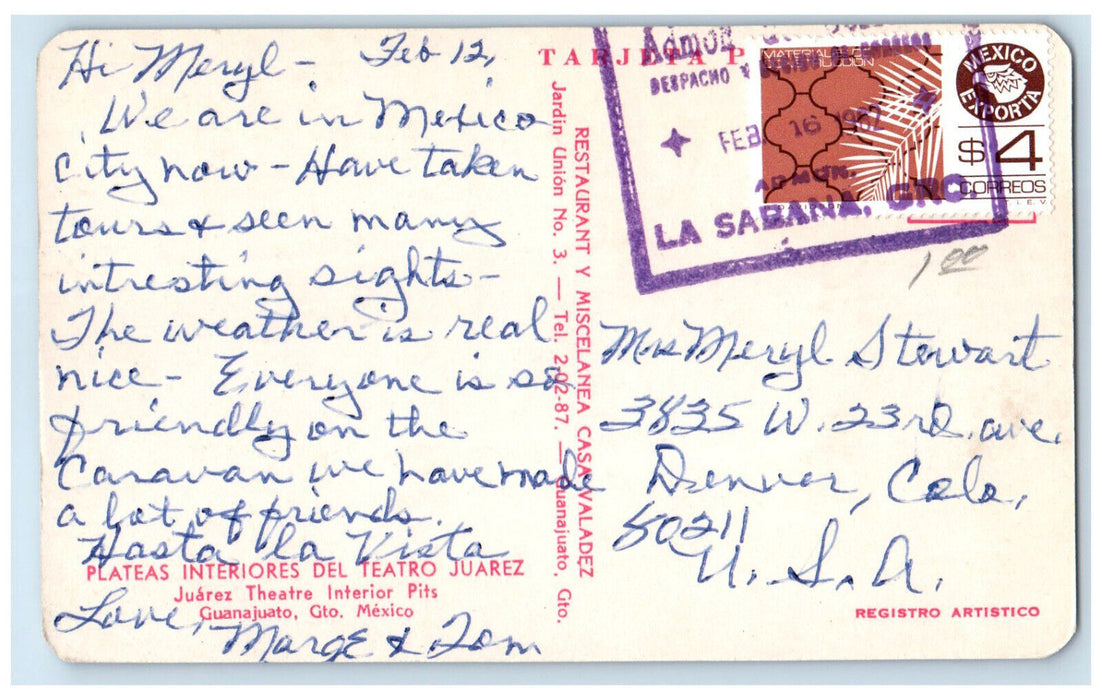 Hi Meryl - Feb 12,
We are in Mexico
City now - Have taken
tours & seen many
intresting sights -
The weather is real
nice - Everyone is so
friendly on the
Caravan we have made
a lot of friends.
Hasta la Vista
Love,
Marge & Tom
PLATEAS INTERIORES DEL TEATRO JUAREZ
Juárez Theatre Interior Pits
Guanajuato, Gto. México
TARJETA P
RESTAURANT Y MISCELANEA CASA VALADEZ
Jardin Unión No. 3. — Tel. 2-02-87. — Guanajuato, Gto.
Admon
DESPACHO Y
FEB 16 1982
ADMON.
LA SABANA, GRO.
MATERIALES DE
CONSTRUCCION
MEXICO
EXPORTA
$4
CORREOS
T.I.E.V.
1 00
Mrs Meryl Stewart
3835 W. 23rd. ave.
Denver, Colo,
80211
U. S. A.
REGISTRO ARTISTICO